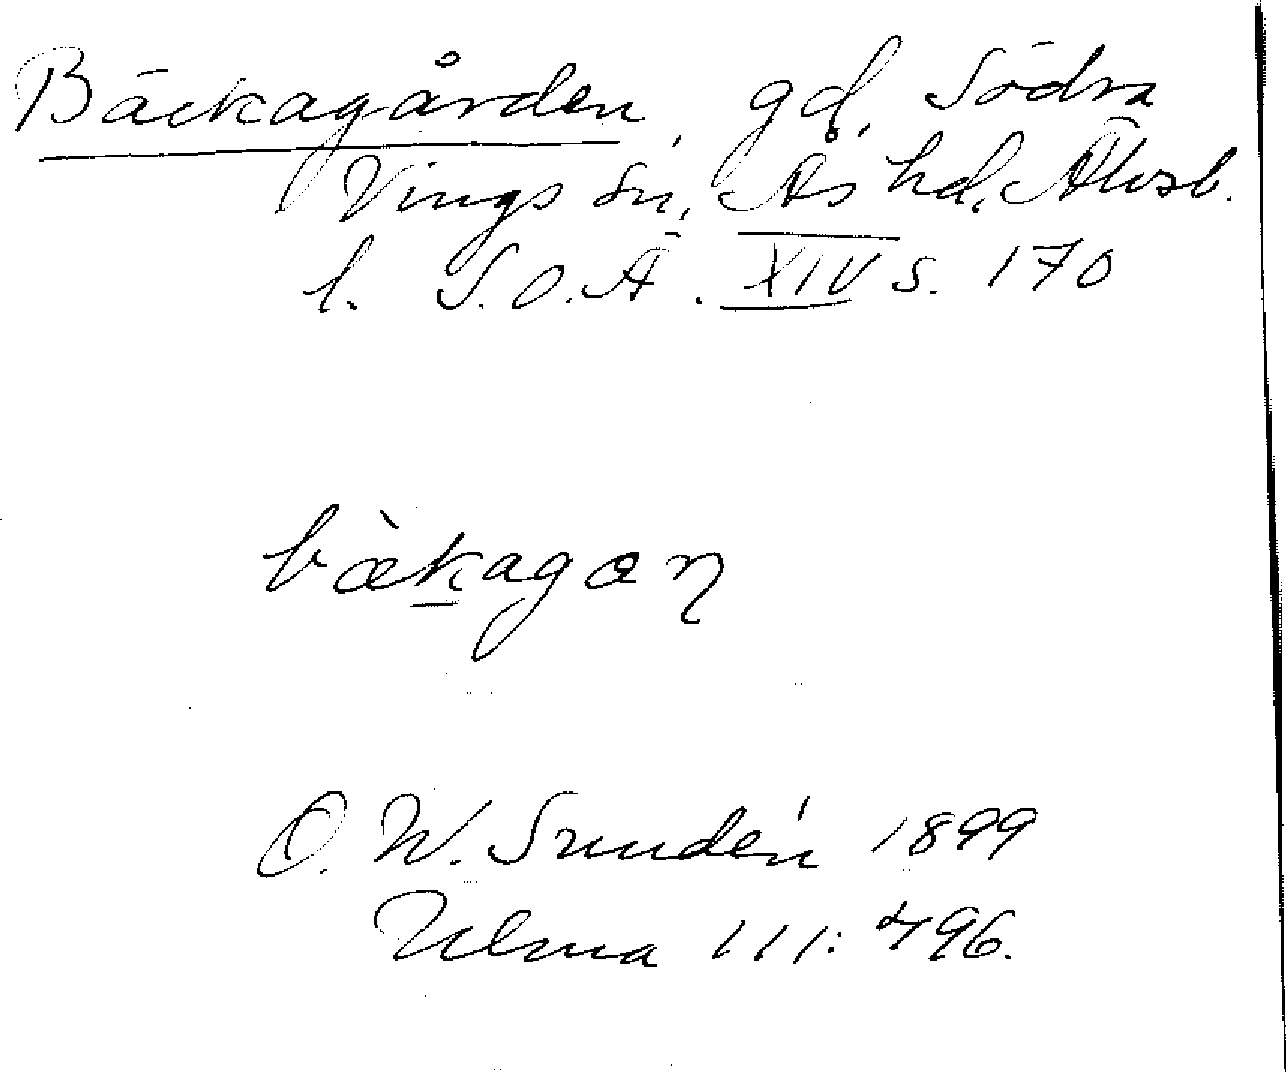 Bäckagården, gd, Södra
Vings sn, Ås hd, Älvsb.
l. S.O.Ä. XIV s. 170
bæ̀kagaɳ
O. W. Sundén 1899
Ulma 111: 496.